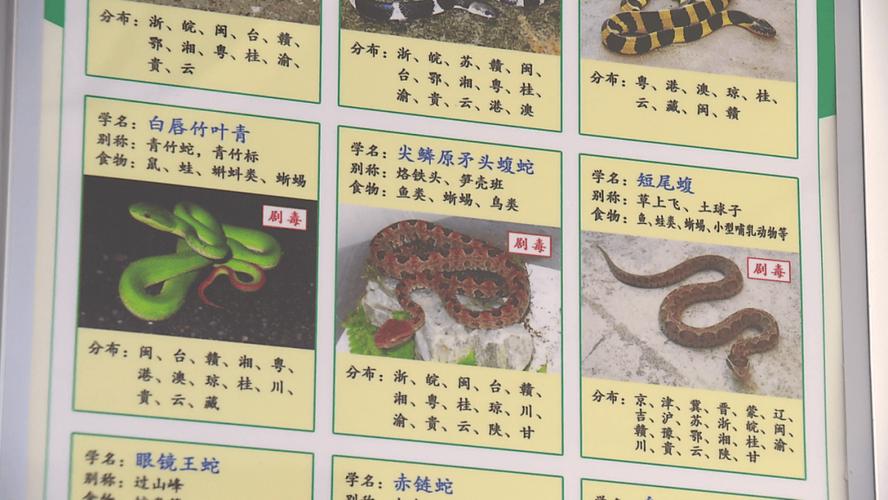 分布：浙、皖、闽、台、赣、
鄂、湘、粤、桂、渝、
贵、云
分布：浙、皖、苏、赣、闽、
台、鄂、湘、粤、桂、
渝、贵、云、港、澳
分布：粤、港、澳、琼、桂、
云、藏、闽、赣
学名：白唇竹叶青
别称：青竹蛇，青竹标
食物：鼠、蛙、蝌蚪类、蜥蜴
剧毒
分布：闽、台、赣、湘、粤、
港、澳、琼、桂、川、
贵、云、藏
学名：尖鳞原矛头蝮蛇
别称：烙铁头、笋壳班
食物：鱼类、蜥蜴、鸟类
剧毒
分布：浙、皖、闽、台、赣、
湘、粤、桂、琼、川、
渝、贵、云、陕、甘
学名：短尾蝮
别称：草上飞、土球子
食物：鱼、蛙类、蜥蜴、小型哺乳动物等
剧毒
分布：京、津、冀、晋、蒙、辽、
吉、沪、苏、浙、皖、闽、
赣、豫、鄂、湘、桂、渝、
川、贵、云、陕、甘
学名：眼镜王蛇
别称：过山峰
学名：赤链蛇